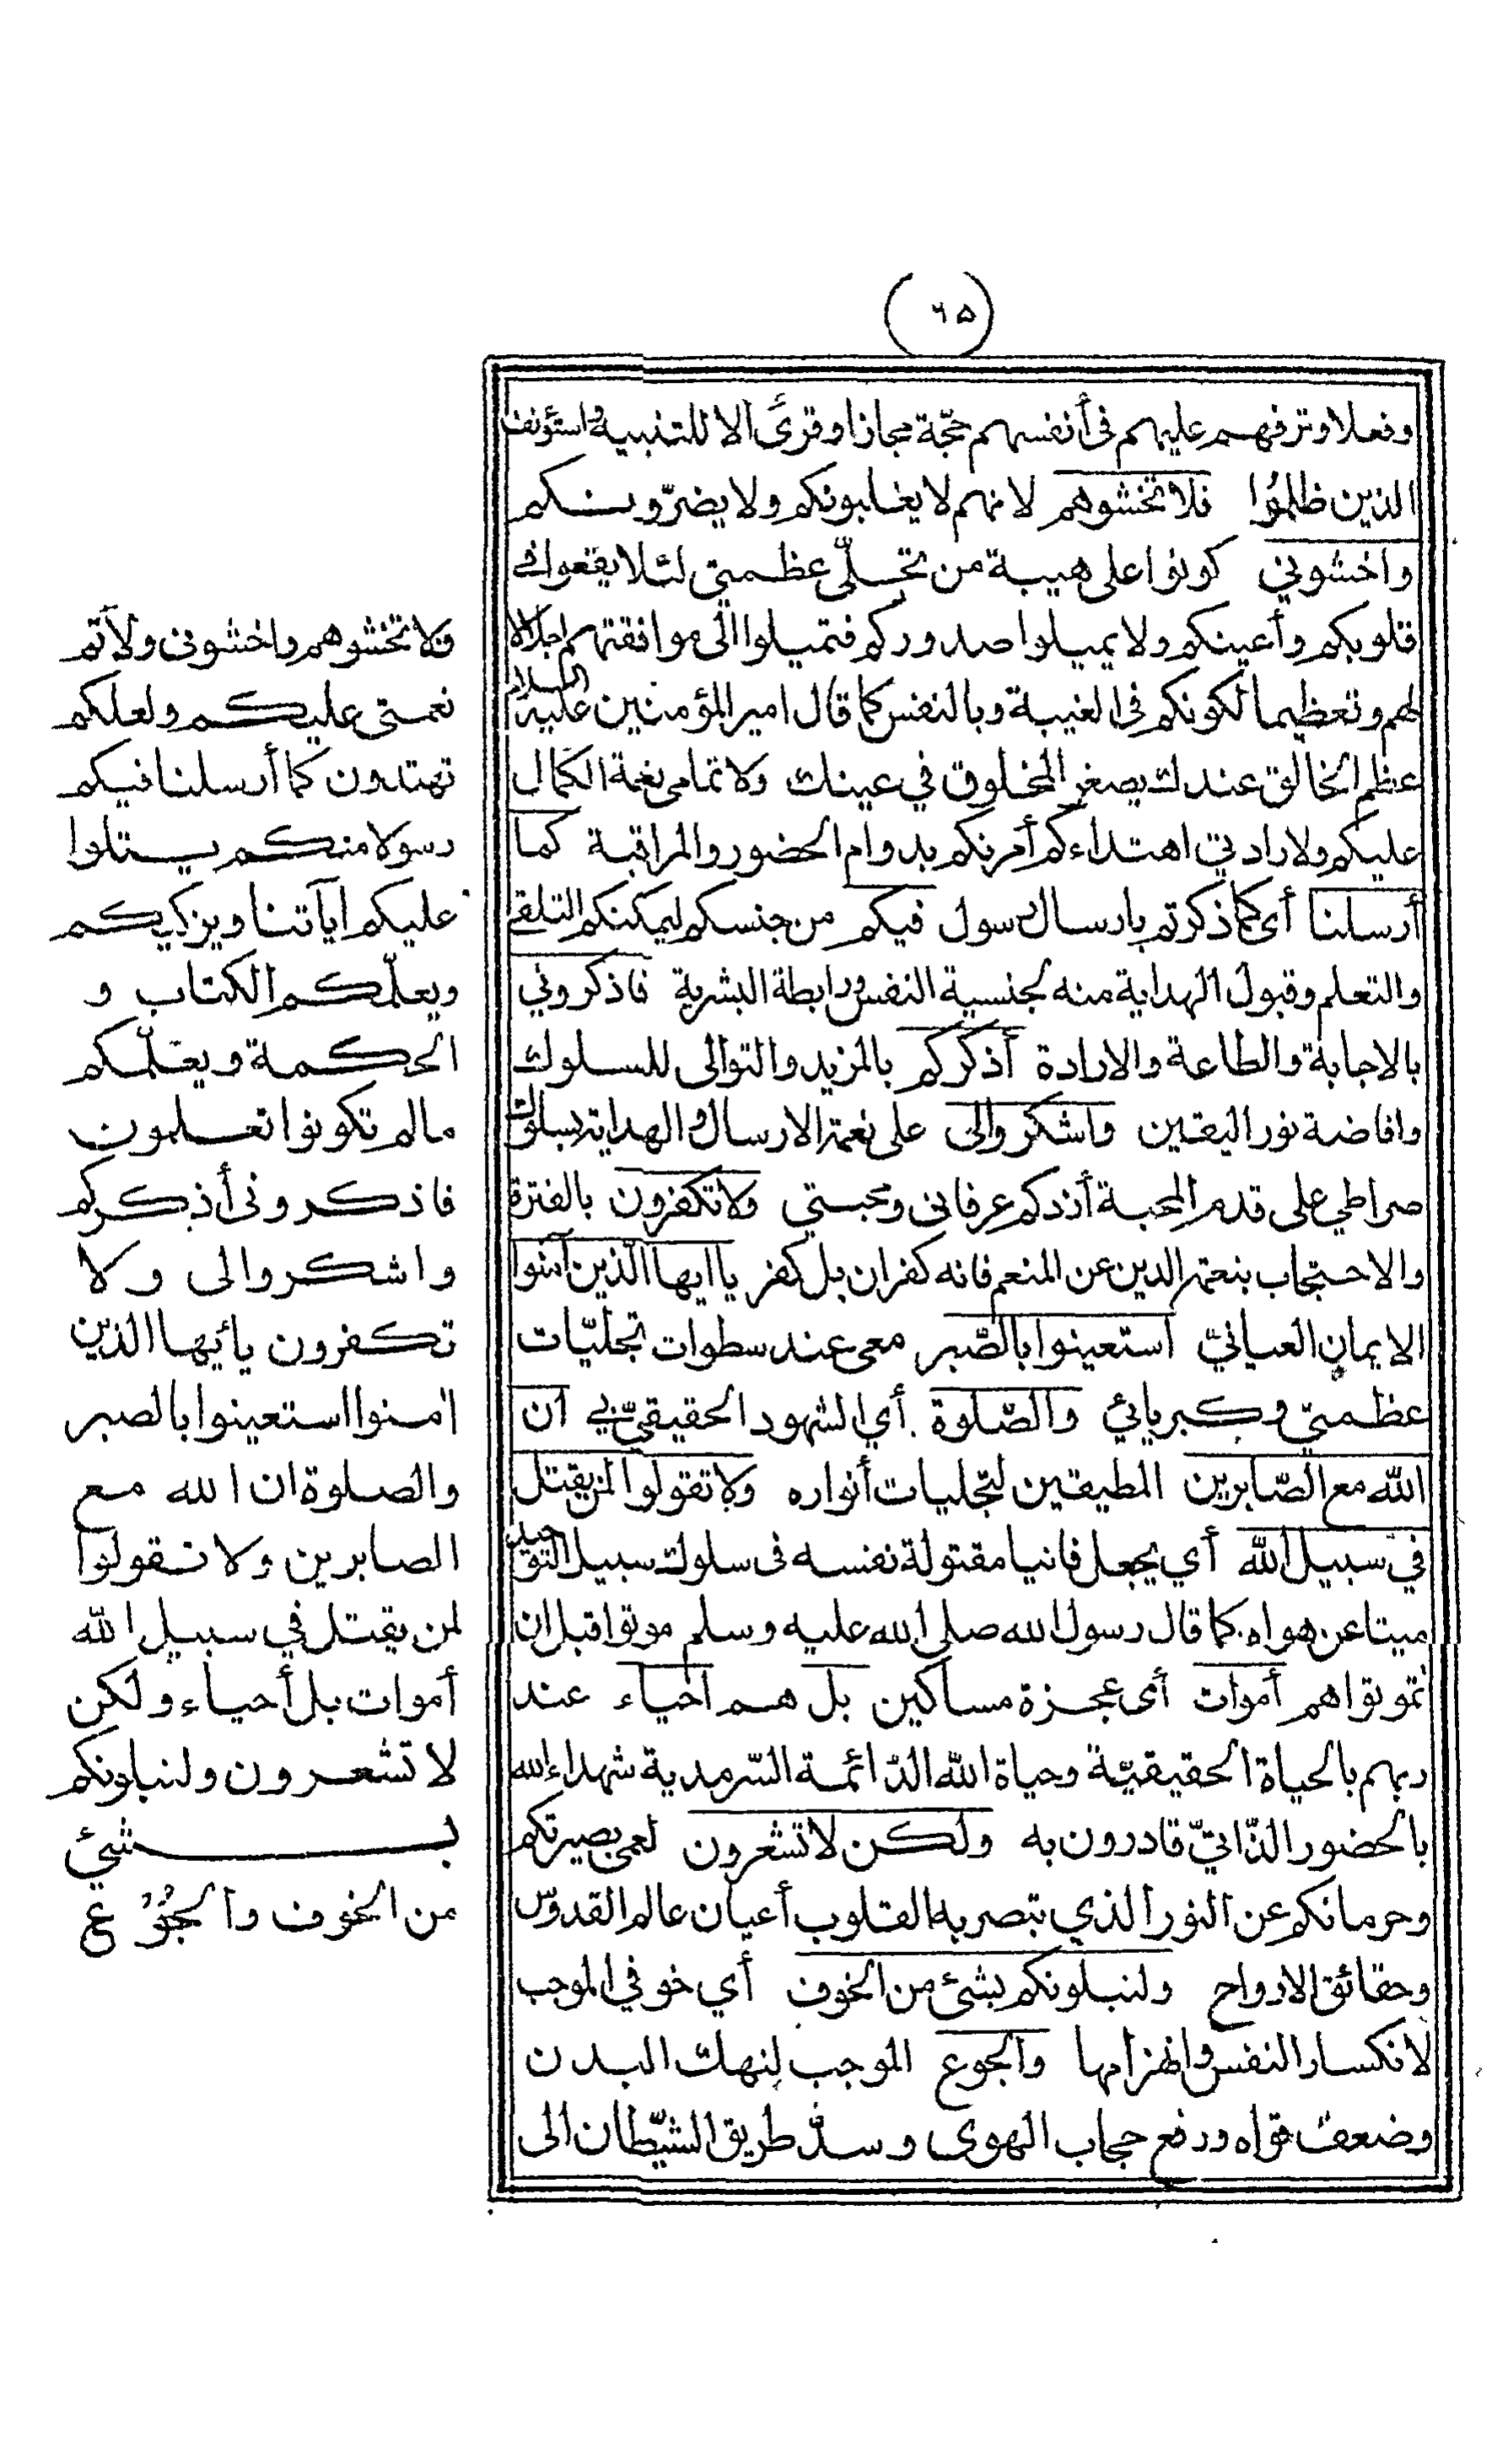 (٦٥)
وفعلا وترفهم عليهم فى أنفسهم حجّة مجازا وقرئ الا للتنبيه واستؤنف
الذين ظلموا فلا تخشوهم لانهم لا يغلبونكم ولا يضرّونكم
واخشوني كونوا على هيبة من تجلّي عظمتي لئلا يقعوا في
قلوبكم وأعينكم ولا يميلوا صدوركم فتميلوا الى موافقتهم اجلالا
لهم وتعظيما لكونكم فى الغيبة وبالنفس كما قال امير المؤمنين عليه السلام
عظم الخالق عندك يصغر المخلوق في عينك ولاتمامى نعمة الكمال
عليكم ولارادتي اهتداءكم أمرتكم بدوام الحضور والمراقبة كما
أرسلنا أى كما ذكرتم بارسال رسول فيكم من جنسكم ليمكنكم التلقي
والتعلم وقبول الهداية منه لجنسية النفس ورابطة البشرية فاذكروني
بالاجابة والطاعة والارادة أذكركم بالمزيد والتوالى للسلوك
وافاضة نور اليقين واشكروالي على نعمة الارسال والهداية بسلوك
صراطي على قدم المحبة أزدكم عرفانى ومحبتي ولا تكفرون بالفترة
والاحتجاب بنعمة الدين عن المنعم فانه كفران بل كفر يا ايها الذين آمنوا
الايمان العيانيّ استعينوا بالصّبر معى عند سطوات تجليّات
عظمتي وكبريائي والصّلوة أي الشهود الحقيقيّ بي ان
اللّه مع الصّابرين المطيقين لتجليات أنواره ولا تقولوا لمن يقتل
في سبيل اللّه أي يجعل فانيا مقتولة نفسه فى سلوك سبيل التوحيد
ميتا عن هواه كما قال رسول الله صلى الله عليه وسلم موتوا قبل ان
تموتوا هم أموات أى عجزة مساكين بل هم احياء عند
ربهم بالحياة الحقيقيّة وحياة اللّه الدّائمة السّرمدية شهداء لله
بالحضور الذّاتيّ قادرون به ولكن لا تشعرون لعمى بصيرتكم
وحرمانكم عن النور الذي تبصر به القلوب أعيان عالم القدوس
وحقائق الارواح ولنبلونكم بشئ من الخوف أي خوفي الموجب
لانكسار النفس وانهزامها والجوع الموجب لنهك البدن
وضعف قواه ورفع حجاب الهوى وسدّ طريق الشيّطان الى
فلا تخشوهم واخشونى ولاتم
نعمتى عليكم ولعلكم
تهتدون كما أرسلنا فيكم
رسولا منكم يتلوا
عليكم اياتنا ويزكيكم
ويعلّمكم الكتاب و
الحكمة ويعلّمكم
مالم تكونوا تعلمون
فاذكرونى أذكركم
واشكروالى ولا
تكفرون يائيها الذين
امنوا استعينوا بالصبر
والصلوة ان الله مع
الصابرين ولا تقولوا
لمن يقتل في سبيل اللّه
أموات بل أحياء ولكن
لا تشعرون ولنبلونكم
بشئ
من الخوف والجوع